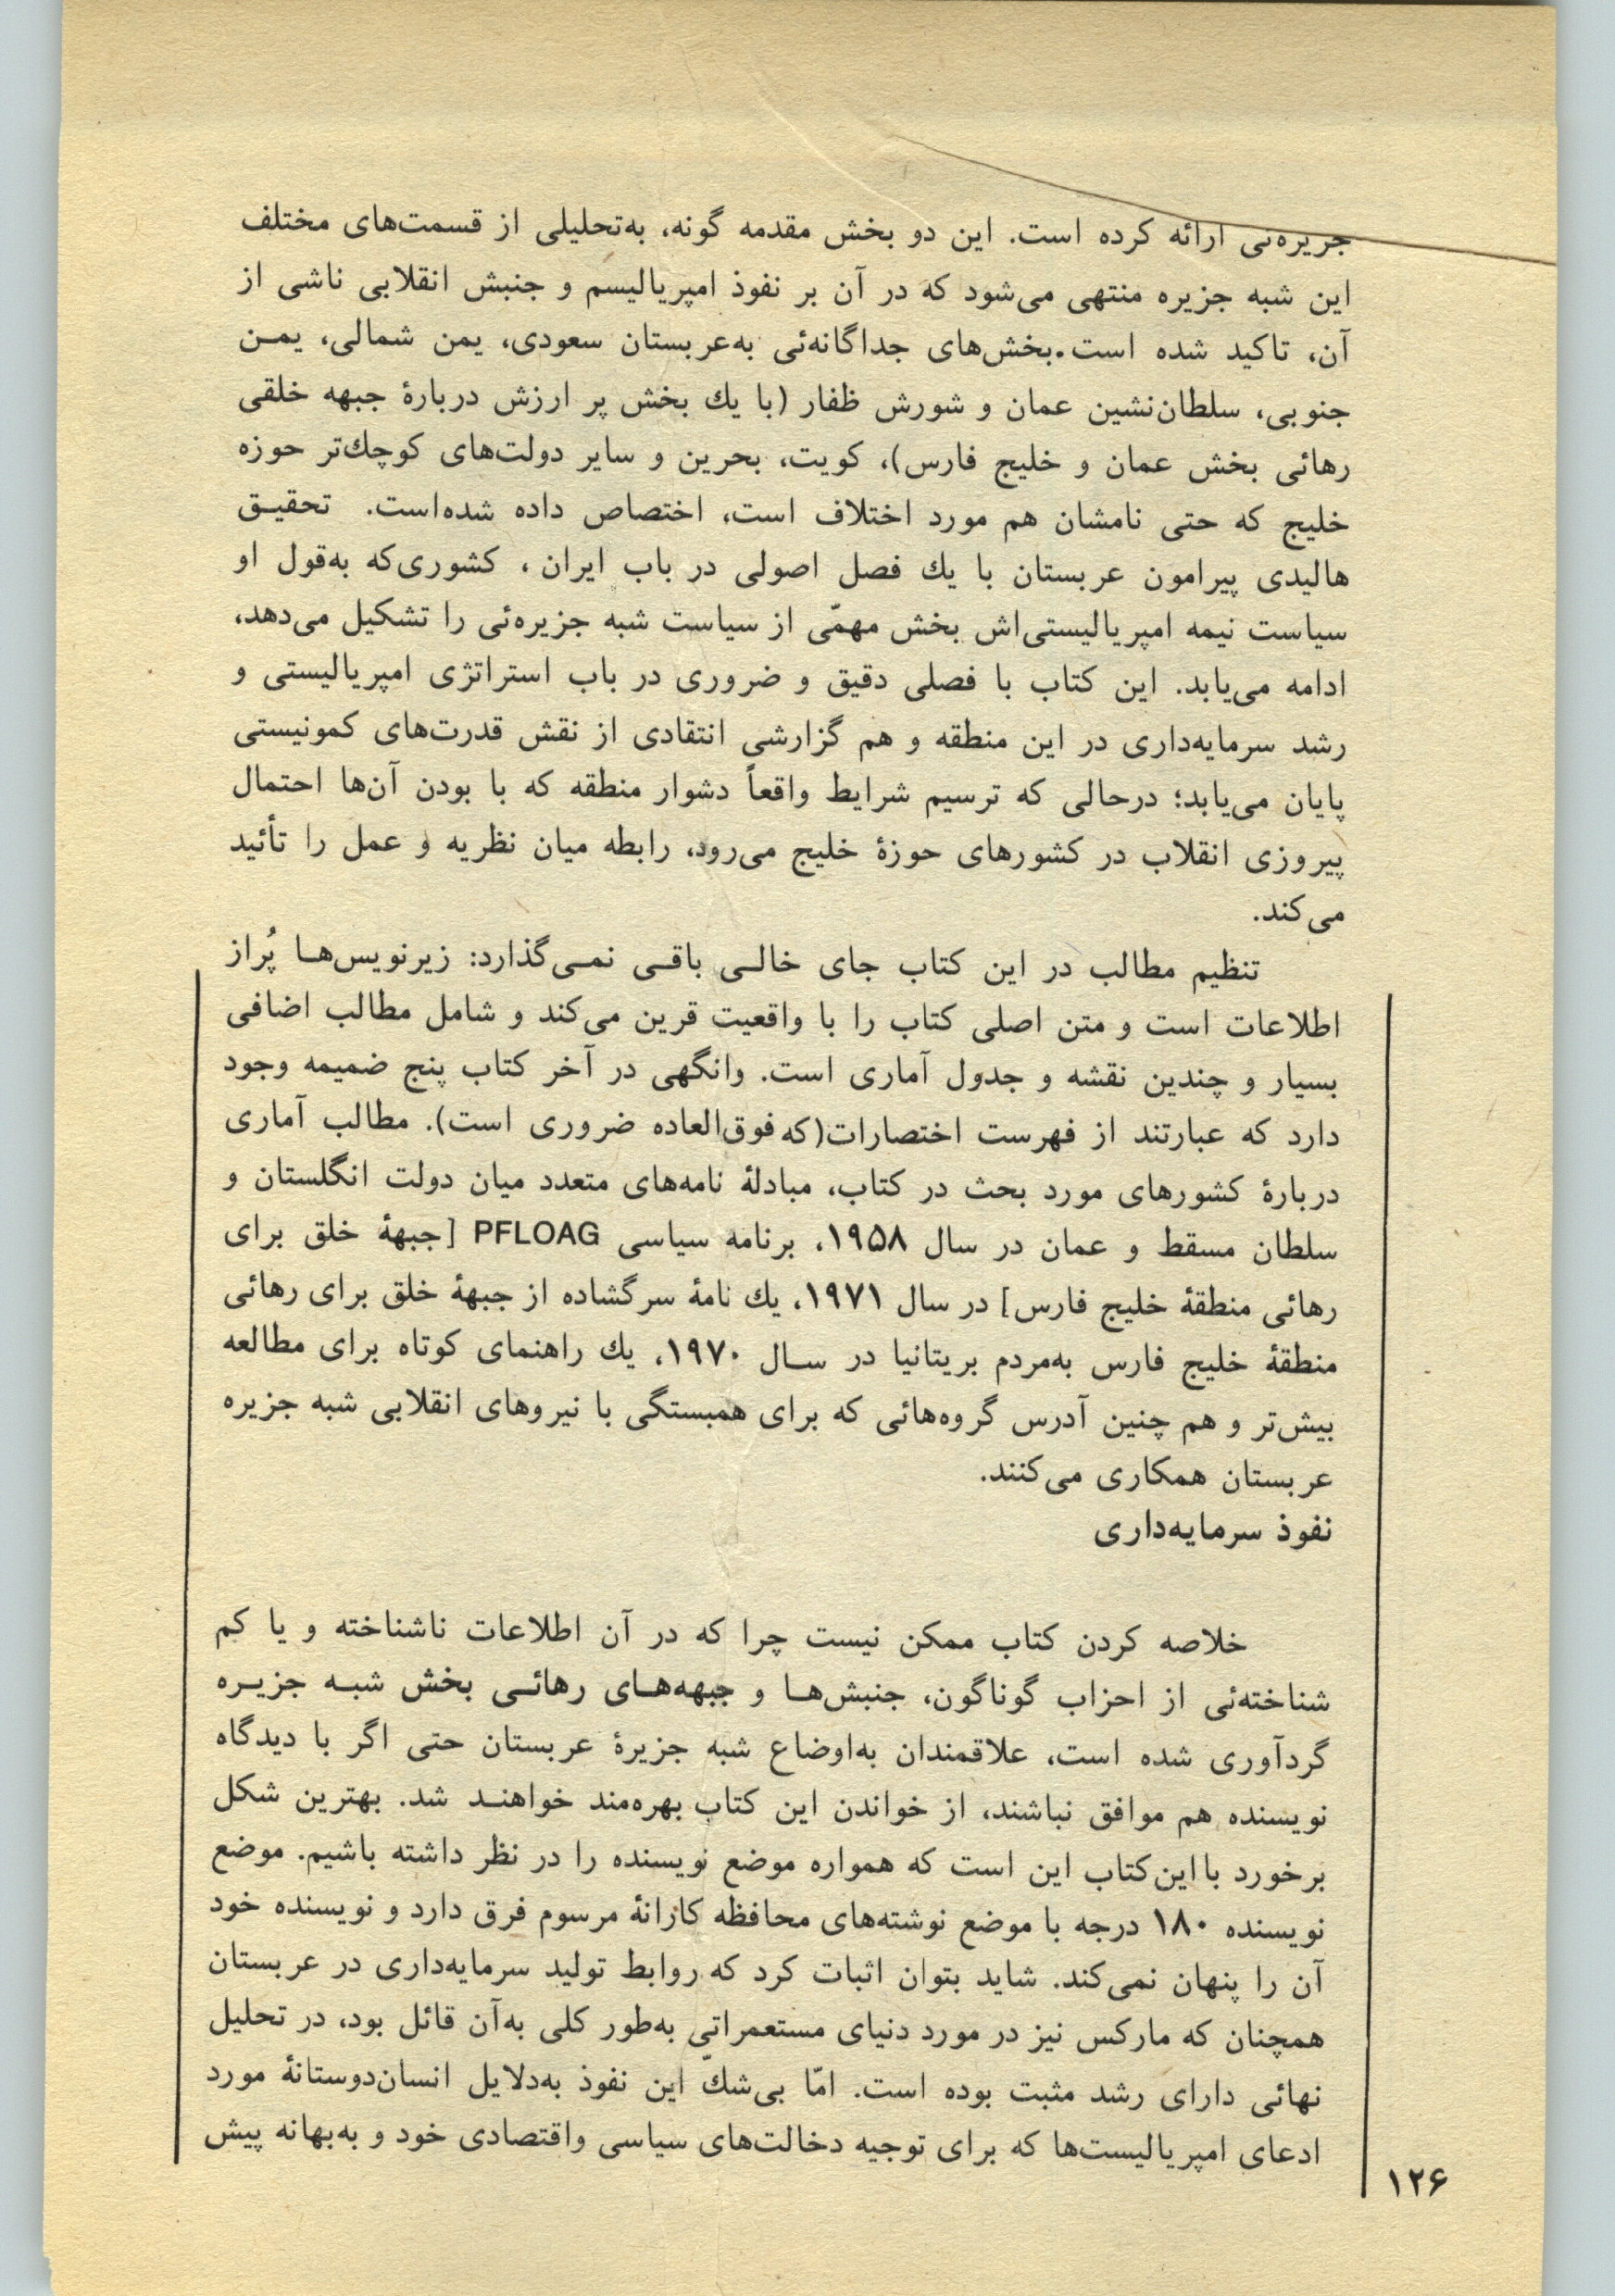 جزیره‌ئی ارائه کرده است. این دو بخش مقدمه گونه، به‌تحلیلی از قسمت‌های مختلف
این شبه جزیره منتهی می‌شود که در آن بر نفوذ امپریالیسم و جنبش انقلابی ناشی از
آن، تاکید شده است.بخش‌های جداگانه‌ئی به‌عربستان سعودی، یمن شمالی، یمـن
جنوبی، سلطان‌نشین عمان و شورش ظفار (با یك بخش پر ارزش دربارۀ جبهه خلقی
رهائی بخش عمان و خلیج فارس)، کویت، بحرین و سایر دولت‌های کوچك‌تر حوزه
خلیج که حتی نامشان هم مورد اختلاف است، اختصاص داده شده‌است. تحقیـق
هالیدی پیرامون عربستان با یك فصل اصولی در باب ایران، کشوری‌که به‌قول او
سیاست نیمه امپریالیستی‌اش بخش مهمّی از سیاست شبه جزیره‌ئی را تشکیل می‌دهد،
ادامه می‌یابد. این کتاب با فصلی دقیق و ضروری در باب استراتژی امپریالیستی و
رشد سرمایه‌داری در این منطقه و هم گزارشی انتقادی از نقش قدرت‌های کمونیستی
پایان می‌یابد؛ درحالی که ترسیم شرایط واقعاً دشوار منطقه که با بودن آن‌ها احتمال
پیروزی انقلاب در کشورهای حوزۀ خلیج می‌رود، رابطه میان نظریه و عمل را تأئید
می‌کند.
تنظیم مطالب در این کتاب جای خالـی باقـی نمـی‌گذارد: زیرنویس‌هـا پُراز
اطلاعات است و متن اصلی کتاب را با واقعیت قرین می‌کند و شامل مطالب اضافی
بسیار و چندین نقشه و جدول آماری است. وانگهی در آخر کتاب پنج ضمیمه وجود
دارد که عبارتند از فهرست اختصارات(که فوق‌العاده ضروری است). مطالب آماری
دربارۀ کشورهای مورد بحث در کتاب، مبادلۀ نامه‌های متعدد میان دولت انگلستان و
سلطان مسقط و عمان در سال ۱۹۵۸، برنامه سیاسی PFLOAG [جبهۀ خلق برای
رهائی منطقۀ خلیج فارس] در سال ۱۹۷۱، یك نامۀ سرگشاده از جبهۀ خلق برای رهائی
منطقۀ خلیج فارس به‌مردم بریتانیا در سـال ۱۹۷۰، یك راهنمای کوتاه برای مطالعه
بیش‌تر و هم چنین آدرس گروه‌هائی که برای همبستگی با نیروهای انقلابی شبه جزیره
عربستان همکاری می‌کنند.
نفوذ سرمایه‌داری
خلاصه کردن کتاب ممکن نیست چرا که در آن اطلاعات ناشناخته و یا کم
شناخته‌ئی از احزاب گوناگون، جنبش‌هـا و جبهه‌هـای رهائـی بخش شبـه جزیـره
گردآوری شده است، علاقمندان به‌اوضاع شبه جزیرۀ عربستان حتی اگر با دیدگاه
نویسنده هم موافق نباشند، از خواندن این کتاب بهره‌مند خواهنـد شد. بهترین شکل
برخورد با این‌کتاب این است که همواره موضع نویسنده را در نظر داشته باشیم. موضع
نویسنده ۱۸۰ درجه با موضع نوشته‌های محافظه کارانۀ مرسوم فرق دارد و نویسنده خود
آن را پنهان نمی‌کند. شاید بتوان اثبات کرد که روابط تولید سرمایه‌داری در عربستان
همچنان که مارکس نیز در مورد دنیای مستعمراتی به‌طور کلی به‌آن قائل بود، در تحلیل
نهائی دارای رشد مثبت بوده است. امّا بی‌شكّ این نفوذ به‌دلایل انسان‌دوستانۀ مورد
ادعای امپریالیست‌ها که برای توجیه دخالت‌های سیاسی واقتصادی خود و به‌بهانه پیش
۱۲۶